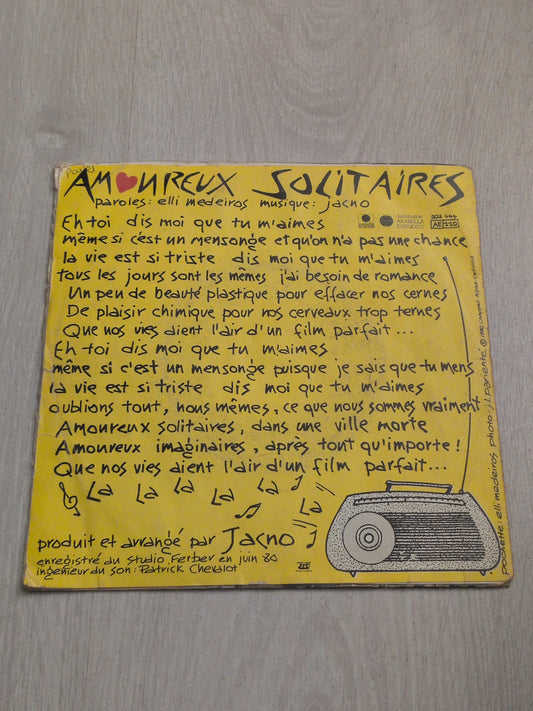 AMOUREUX SOLITAIRES
paroles: elli medeiros musique: jacno
distribution
ARABELLA
EURODISC
102 444
AE/110
Eh toi dis moi que tu m'aimes
même si c'est un mensonge et qu'on n'a pas une chance
la vie est si triste dis moi que tu m'aimes
tous les jours sont les mêmes j'ai besoin de romance
Un peu de beauté plastique pour effacer nos cernes
De plaisir chimique pour nos cerveaux trop ternes
Que nos vies aient l'air d'un film parfait...
Eh toi dis moi que tu m'aimes
même si c'est un mensonge puisque je sais que tu mens
la vie est si triste dis moi que tu m'aimes
oublions tout, nous mêmes, ce que nous sommes vraiment
Amoureux solitaires, dans une ville morte
Amoureux imaginaires, après tout qu'importe!
Que nos vies aient l'air d'un film parfait...
La La La La La La
produit et arrangé par Jacno
enregistré au Studio Ferber en juin 80
ingenieur du son: Patrick Chevalot
pochette: elli medeiros photo: j.l. pariente